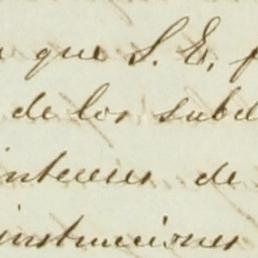 que S. E,
de los subd
intereses de
instrucciones